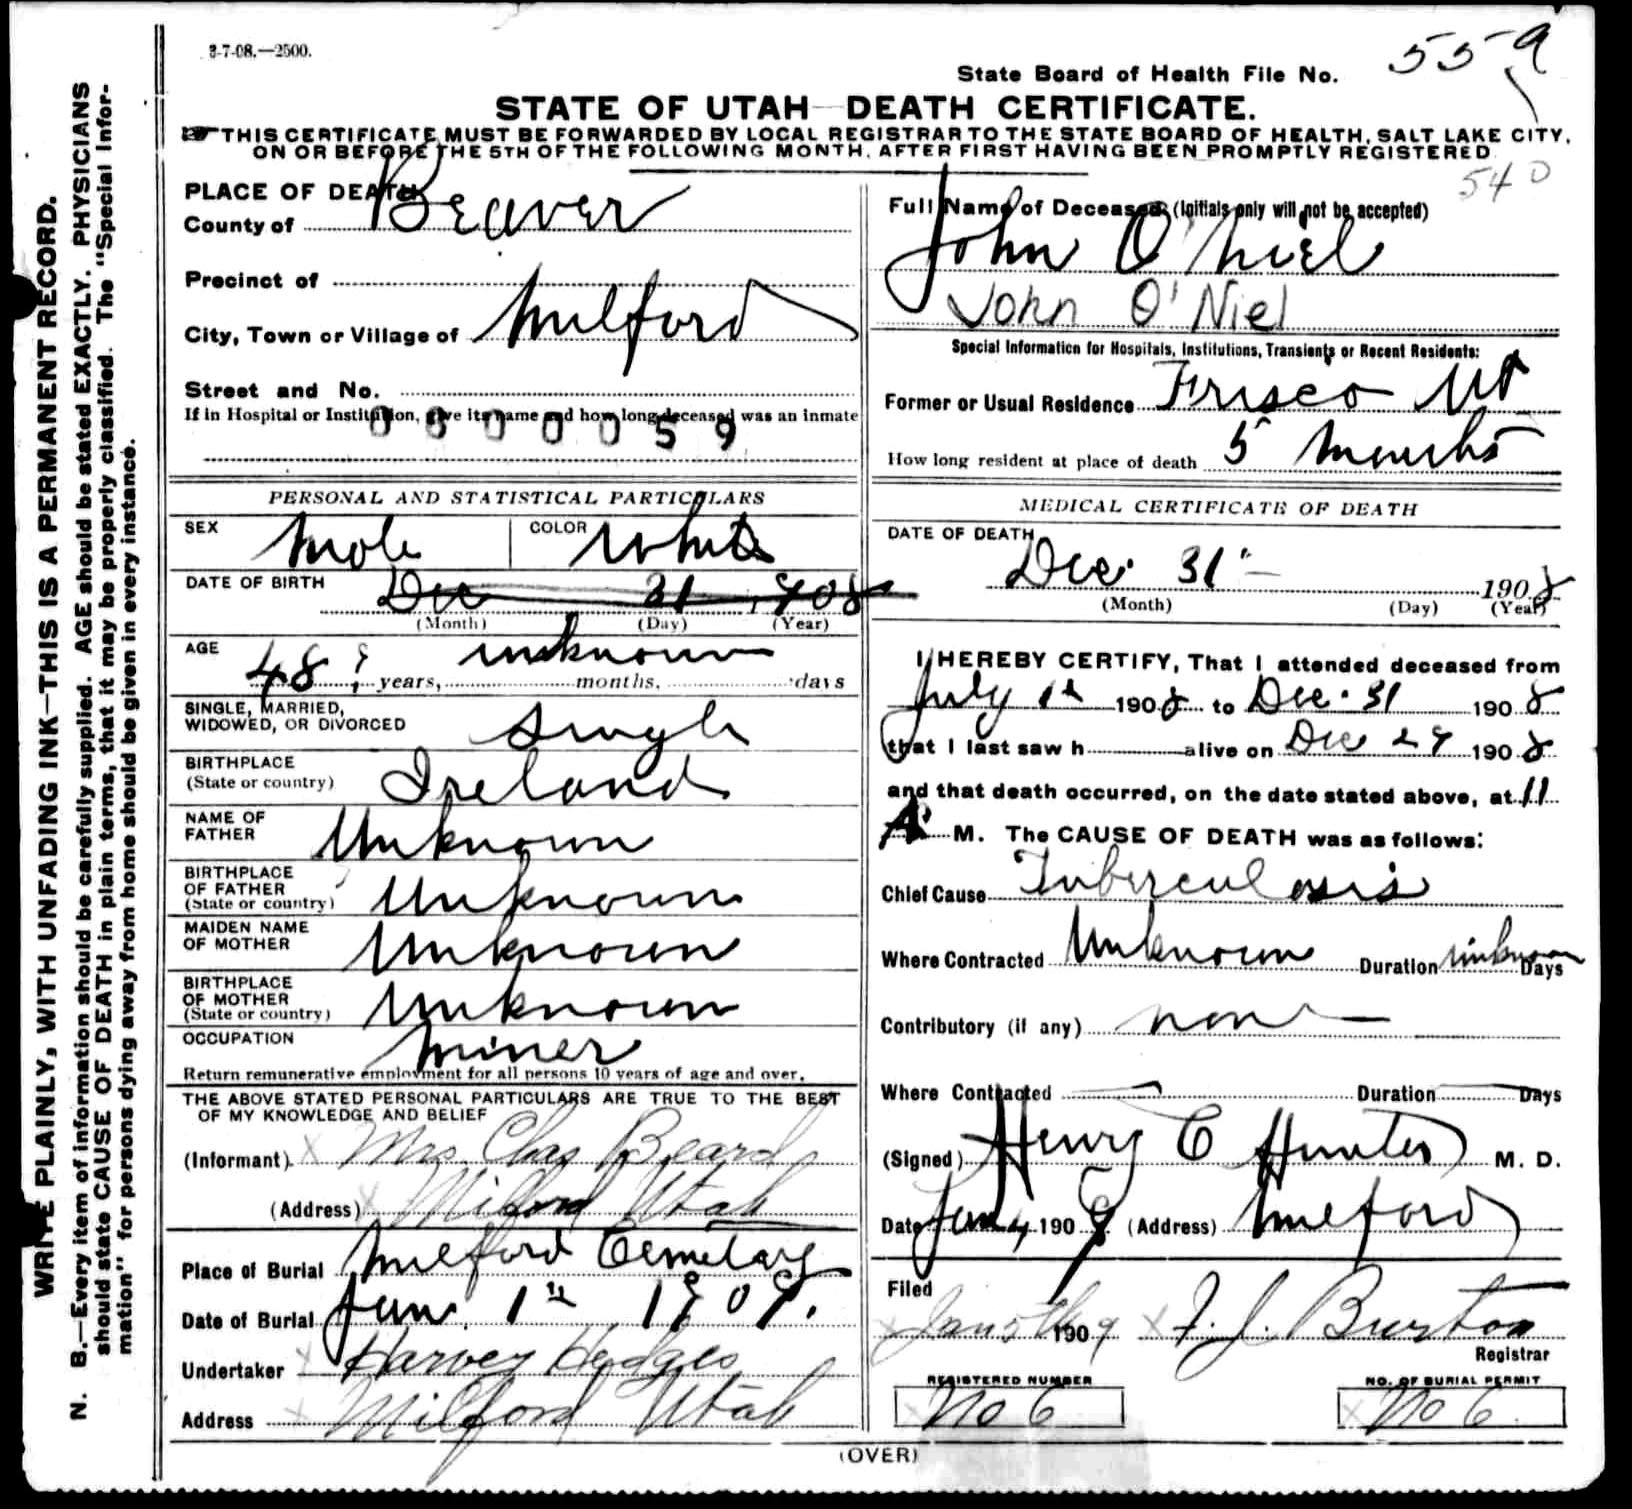 3-7-08.—2500.
State Board of Health File No. 559
STATE OF UTAH—DEATH CERTIFICATE.
THIS CERTIFICATE MUST BE FORWARDED BY LOCAL REGISTRAR TO THE STATE BOARD OF HEALTH, SALT LAKE CITY,
ON OR BEFORE THE 5TH OF THE FOLLOWING MONTH, AFTER FIRST HAVING BEEN PROMPTLY REGISTERED
540
WRITE PLAINLY, WITH UNFADING INK—THIS IS A PERMANENT RECORD.
N. B.—Every item of information should be carefully supplied. AGE should be stated EXACTLY. PHYSICIANS
should state CAUSE OF DEATH in plain terms, that it may be properly classified. The "Special Infor-
mation" for persons dying away from home should be given in every instance.
PLACE OF DEATH
County of Beaver
Precinct of
City, Town or Village of Milford
Street and No.
If in Hospital or Institution, give its name and how long deceased was an inmate
0500059
PERSONAL AND STATISTICAL PARTICULARS
SEX Male COLOR White
DATE OF BIRTH Dec 31, 1908
(Month) (Day) (Year)
AGE 48 ? years, unknown months, days
SINGLE, MARRIED,
WIDOWED, OR DIVORCED Single
BIRTHPLACE
(State or country) Ireland
NAME OF
FATHER Unknown
BIRTHPLACE
OF FATHER
(State or country) Unknown
MAIDEN NAME
OF MOTHER Unknown
BIRTHPLACE
OF MOTHER
(State or country) Unknown
OCCUPATION Miner
Return remunerative employment for all persons 10 years of age and over.
THE ABOVE STATED PERSONAL PARTICULARS ARE TRUE TO THE BEST
OF MY KNOWLEDGE AND BELIEF
(Informant) X Mrs. Chas Beard
(Address) X Milford Utah
Place of Burial Milford Cemetary
Date of Burial Jan. 1st 1909.
Undertaker X Harvey Hedges
Address X Milford Utah
Full Name of Deceased (Initials only will not be accepted)
John O'Niel
John O'Niel
Special Information for Hospitals, Institutions, Transients or Recent Residents:
Former or Usual Residence Frisco Ut
How long resident at place of death 5 Months
MEDICAL CERTIFICATE OF DEATH
DATE OF DEATH
Dec. 31 1908
(Month) (Day) (Year)
I HEREBY CERTIFY, That I attended deceased from
July 1st 1908 to Dec. 31 1908
that I last saw h alive on Dec 29 1908
and that death occurred, on the date stated above, at 11
A M. The CAUSE OF DEATH was as follows:
Chief Cause Tuberculosis
Where Contracted Unknown Duration unknown Days
Contributory (if any) none
Where Contracted Duration Days
(Signed) Henry C Hunter M. D.
Date Jan 4 1909 (Address) Milford
Filed
X Jan 5th 1909 X F. J. Burton
Registrar
REGISTERED NUMBER
X No 6
NO. OF BURIAL PERMIT
X No 6
(OVER)